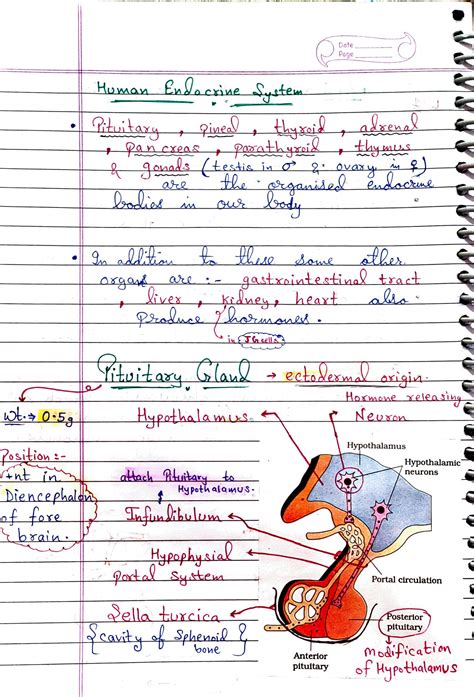 Date
Page
Human Endocrine System
• Pituitary, pineal, thyroid, adrenal
, pancreas, parathyroid, thymus
& gonads (testis in ♂ & ovary in ♀)
are the organised endocrine
bodies in our body
• In addition to these some other
organs are :- gastrointestinal tract
, liver, kidney, heart also
produce hormones.
in JG cells
Pituitary Gland → ectodermal origin
Hormone releasing
Wt. → 0.5g
Hypothalamus
Neuron
Hypothalamus
Hypothalamic
neurons
Position :-
+nt in
Diencephalon
of fore
brain.
attach Pituitary to
Hypothalamus.
Infundibulum
Hypophysial
portal System
Portal circulation
Sella turcica
{cavity of Sphenoid }
bone
Posterior
pituitary
Anterior
pituitary
modification
of Hypothalamus